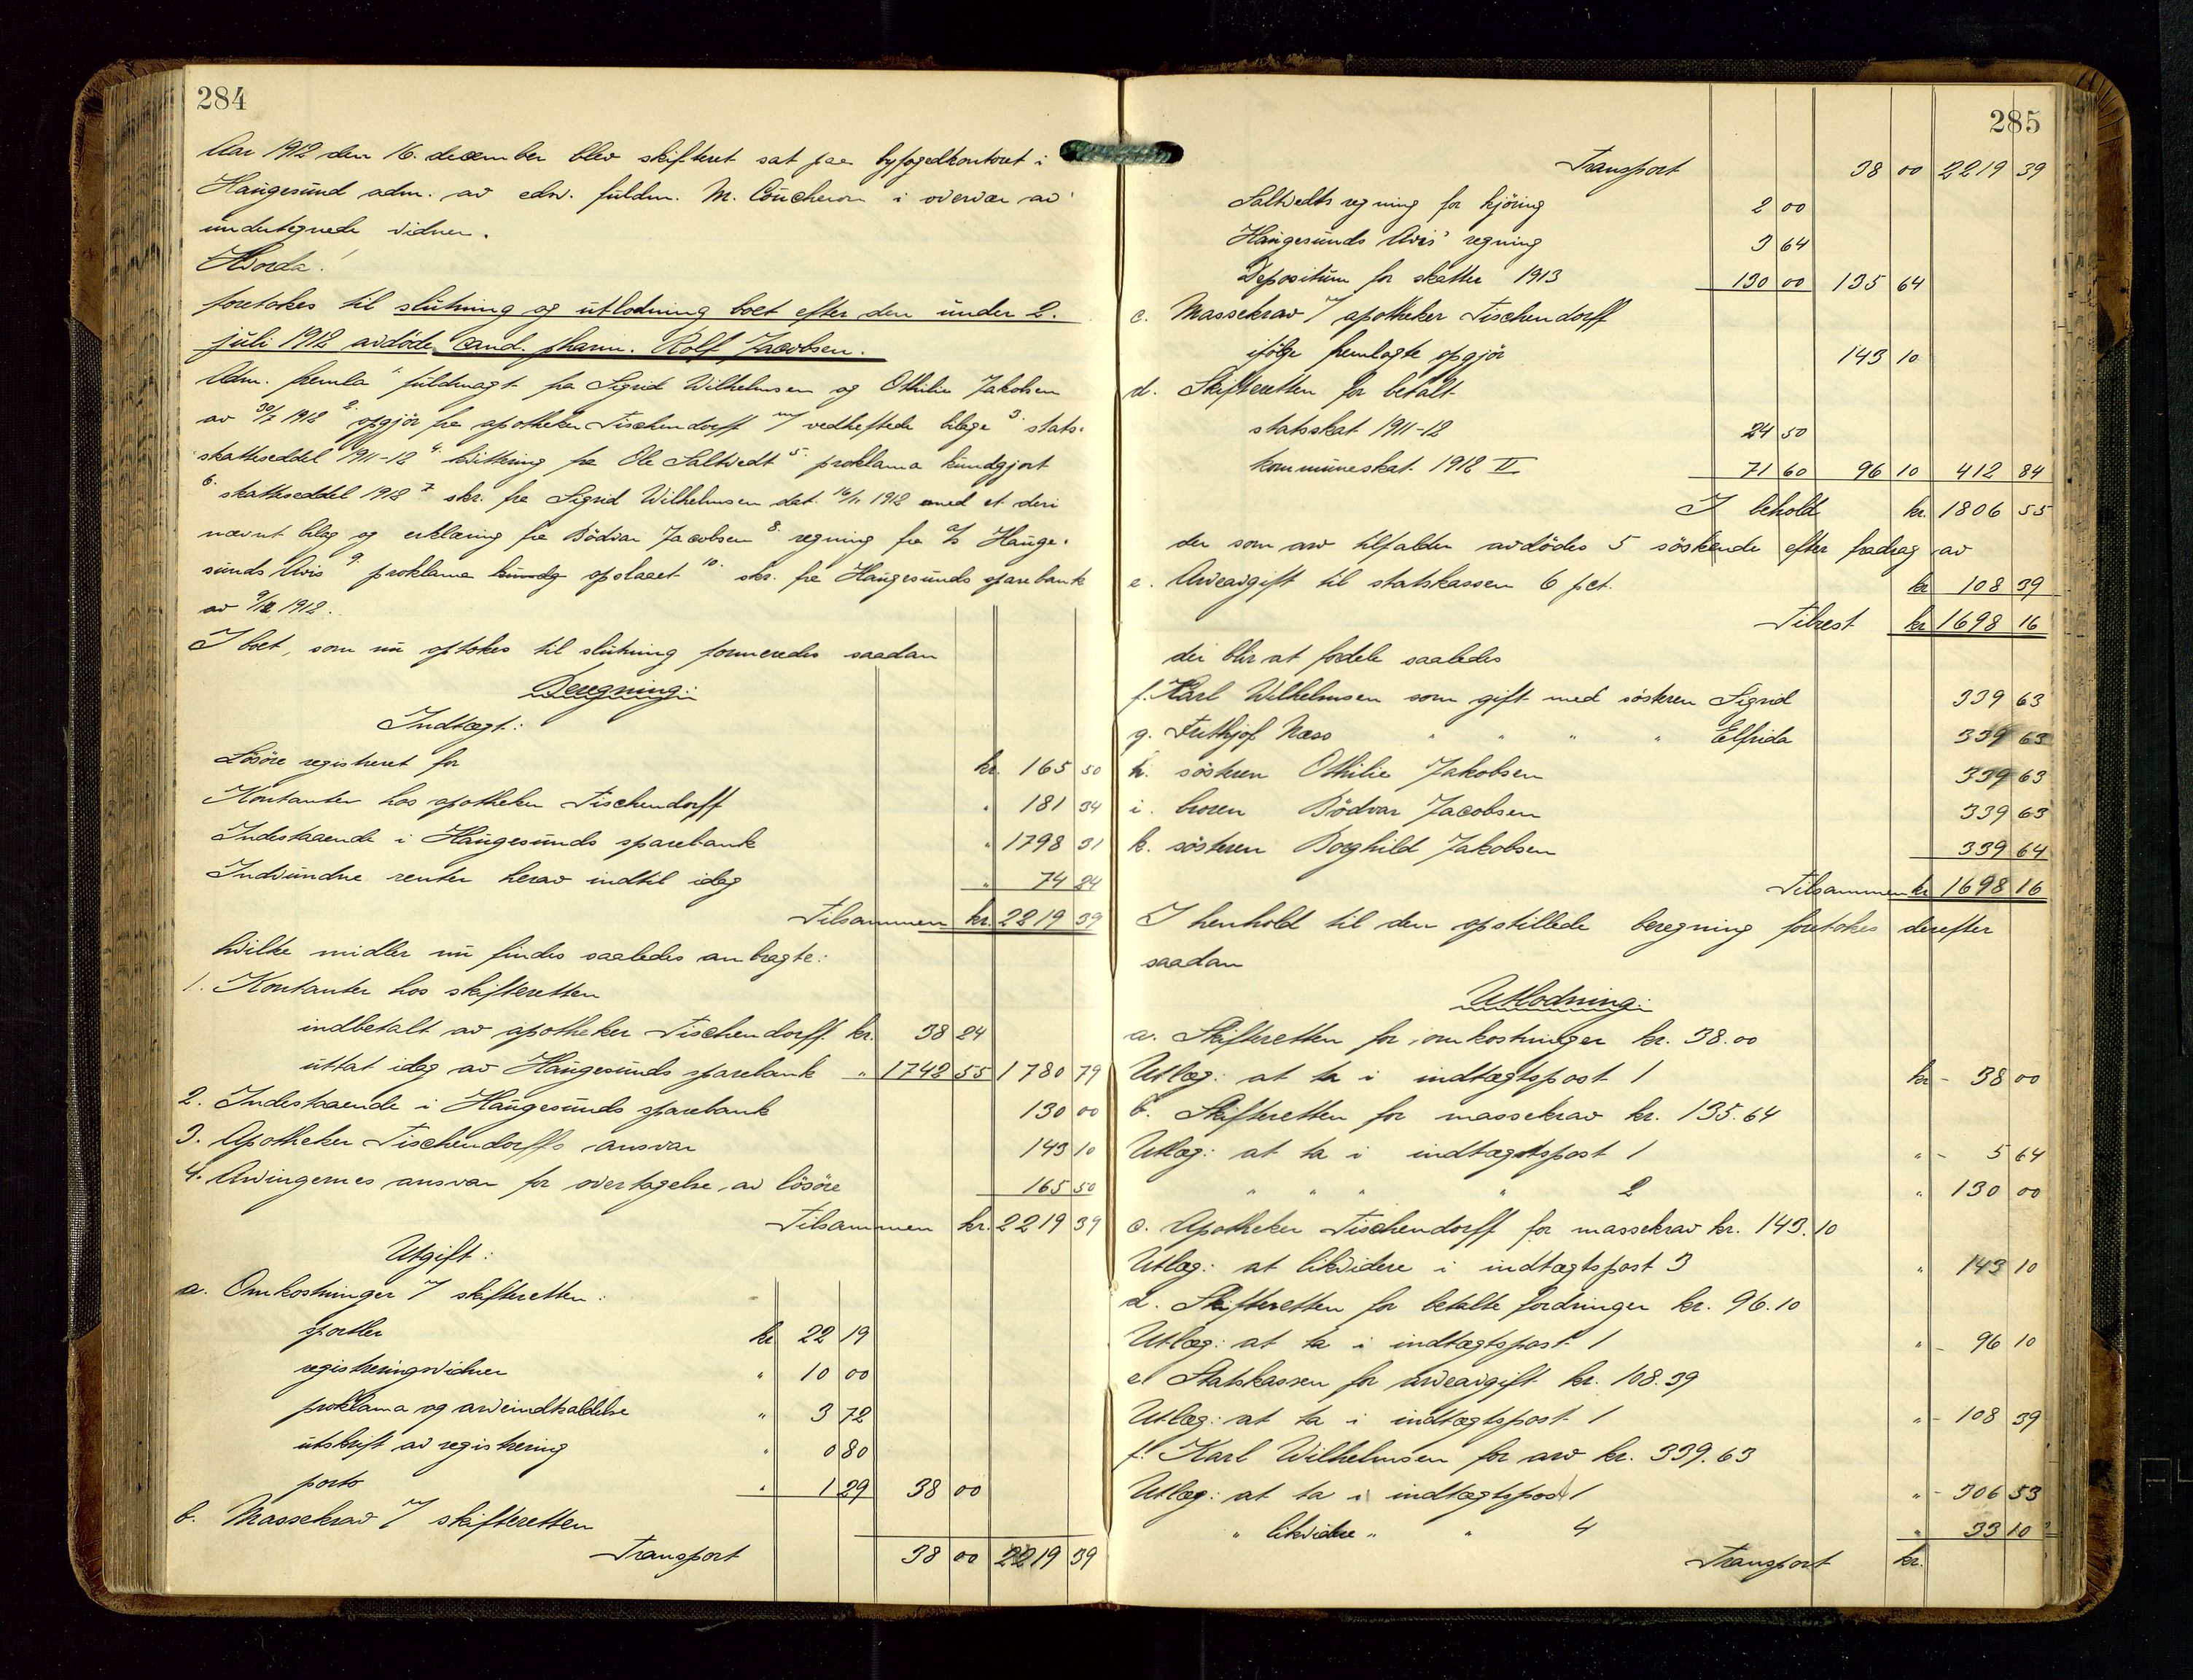 284
Aar 1912 den 16. december blev skifteret sat paa byfogedkontoret i
Haugesund adm. av edsv. fuldm. M. Coucheron i overvær av
undertegnede vidner.
Hvorda!
foretokes til slutning og utlodning boet efter den under 2.
juli 1912 avdöde cand. pharm. Rolf Jacobsen.
Adm. fremla 1. fuldmagt fra Sigrid Wilhelmsen og Othilie Jakobsen
av 30/7 1912 2. opgjör fra apotheker Tischendorff m/ vedheftede bilage 3. stats-
skatteseddel 1911-12 4. kvittering fra Ole Saltvedt 5. proklama kundgjort
6. skatteseddel 1912 7. skr. fra Sigrid Wilhelmsen dat. 16/11 1912 med et deri
nævnt bilag og erklæring fra Bödvar Jacobsen 8. regning fra a/s Hauge-
sunds Avis 9. proklama kundg opslaaet 10. skr. fra Haugesunds sparebank
av 9/12 1912.
I boet, som nu optokes til slutning formeredes saadan
Beregning:
Indtægt:
Lösöre registreret for kr. 165 50
Kontanter hos apotheker Tischendorff " 181 34
Indestaaende i Haugesunds sparebank " 1798 31
Indvundne renter herav indtil idag " 74 24
Tilsammen kr. 2219 39
hvilke midler nu findes saaledes anbragte:
1. Kontanter hos skifteretten
indbetalt av apotheker Tischendorff kr. 38 24
uttat idag av Haugesunds sparebank " 1742 55 1780 79
2. Indestaaende i Haugesunds sparebank 130 00
3. Apotheker Tischendorffs ansvar 143 10
4. Arvingernes ansvar for overtagelse av lösöre 165 50
Tilsammen kr. 2219 39
Utgift:
a. Omkostninger T/ skifteretten:
sportler kr 22 19
registreringsvidner " 10 00
proklama og arveindkaldelse " 3 72
utskrift av registrering " 0 80
porto " 1 29 38 00
b. Massekrav T/ skifteretten
Transport 38 00 2219 39
285
Transport 38 00 2219 39
Saltvedts regning for kjöring 2 00
Haugesunds Avis' regning 3 64
Depositum for skatter 1913 130 00 135 64
c. Massekrav T/ apotheker Tischendorff
ifölge fremlagte opgjör 143 10
d. Skifteretten for betalt
statsskat 1911-12 24 50
kommuneskat 1912 II 71 60 96 10 412 84
I behold kr. 1806 55
der som arv tilfalder avdödes 5 söskende efter fradrag av
e. Arveavgift til statskassen 6 pct. kr 108 39
Tilrest kr 1698 16
der blir at fordele saaledes
f. Karl Wilhelmsen som gift med sösteren Sigrid 339 63
g. Frithjof Næss " " " " Elfrida 339 63
h. sösteren Othilie Jakobsen 339 63
i. broren Bödvar Jacobsen 339 63
k. sösteren Borghild Jakobsen 339 64
Tilsammen kr 1698 16
I henhold til den opstillede beregning foretokes derefter
saadan
Utlodning:
a. Skifteretten for omkostninger kr. 38.00
Utlæg: at ta i indtægtspost 1 kr - 38 00
b. Skifteretten for massekrav kr. 135.64
Utlæg: at ta i indtægtspost 1 " - 5 64
" " " " 2 " 130 00
c. Apotheker Tischendorff for massekrav kr. 143.10
Utlæg: at likvidere i indtægtspost 3 " 143 10
d. Skifteretten for betalte fordringer kr. 96.10
Utlæg: at ta i indtægtspost 1 " - 96 10
e. Statskassen for arveavgift kr. 108.39
Utlæg: at ta i indtægtspost 1 " - 108 39
f. Karl Wilhelmsen for arv kr. 339.63
Utlæg: at ta i indtægtspost 1 " - 306 53
" likvidere " " 4 " 33 10
Transport kr.